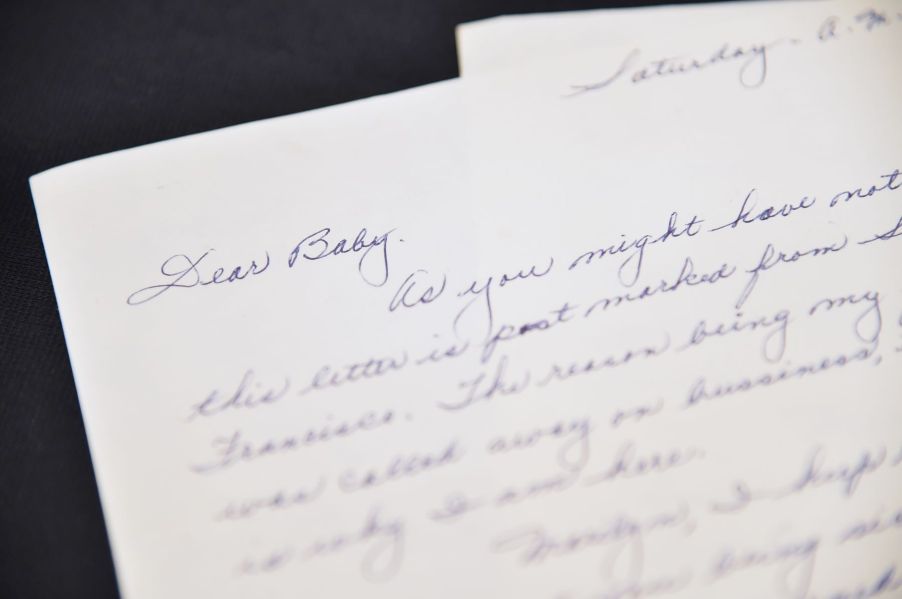 Saturday - A.M.
Dear Baby.
As you might have not
this letter is post marked from S
Francisco. The reason being my
was called away on bussiness,
is why I am here.
Marilyn, I keep
being